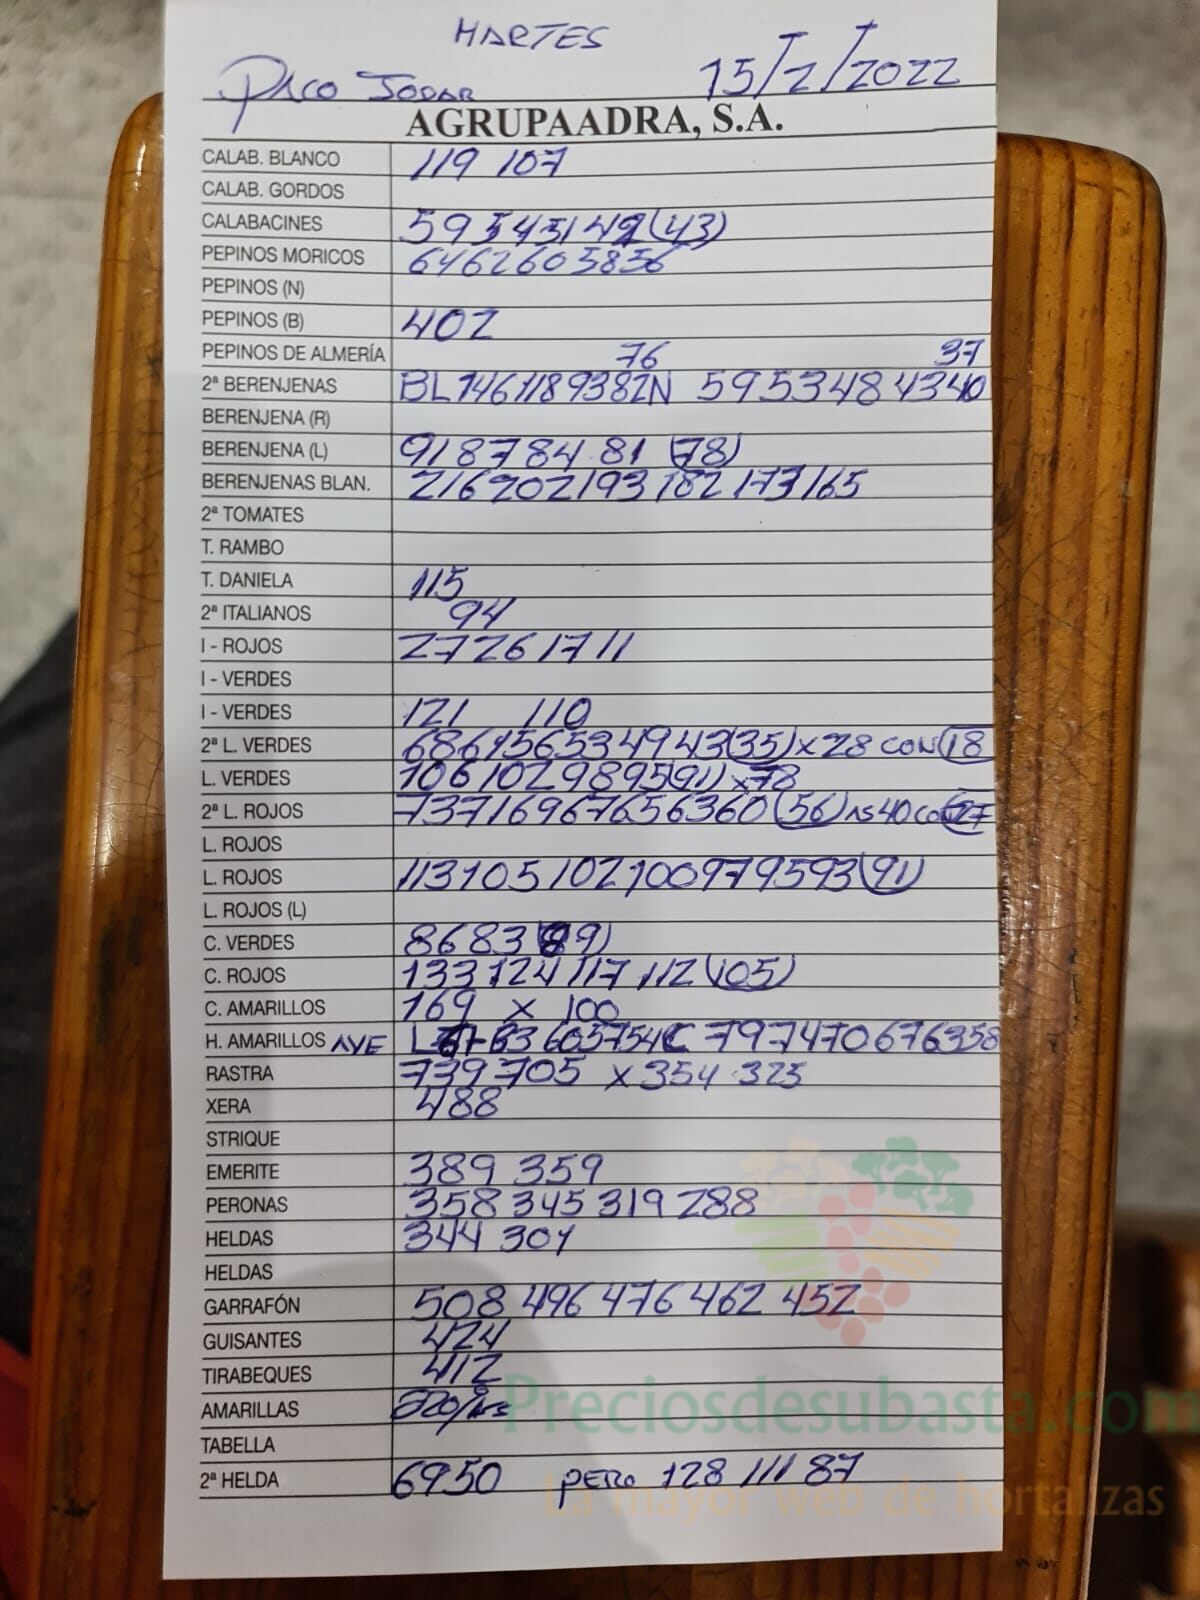 MARTES
PACO JODAR 15/2/2022
AGRUPAADRA, S.A.
CALAB. BLANCO 119 107
CALAB. GORDOS
CALABACINES 59 54 51 49 (43)
PEPINOS MORICOS 64 62 60 58 56
PEPINOS (N)
PEPINOS (B) 402
PEPINOS DE ALMERÍA
76 37
2ª BERENJENAS BL 146 118 93 82 N 59 53 48 43 40
BERENJENA (R)
BERENJENA (L) 91 87 84 81 (78)
BERENJENAS BLAN. 216 202 193 182 173 165
2ª TOMATES
T. RAMBO
T. DANIELA 115
2ª ITALIANOS 94
I - ROJOS 272 261 711
I - VERDES
I - VERDES 121 110
2ª L. VERDES 68 61 56 53 49 43 (35) x 28 CON (18
L. VERDES 106 102 98 95 (91) x 78
2ª L. ROJOS 73 71 69 67 65 63 60 (56) 40
L. ROJOS
L. ROJOS 113 105 102 100 97 95 93 (91)
L. ROJOS (L)
C. VERDES 86 83
C. ROJOS 133 124 117 112 (105)
C. AMARILLOS 169 x 100
H. AMARILLOS 63 60 57 54 C 79 74 70 67 63 58
RASTRA 739 705 x 354 325
XERA 488
STRIQUE
EMERITE 389 359
PERONAS 358 345 319 288
HELDAS 344 301
HELDAS
GARRAFÓN 508 496 476 462 452
GUISANTES 424
TIRABEQUES 412
AMARILLAS
TABELLA
2ª HELDA 69 50 PERO 128 111 87
Preciosdesubasta.com
La mayor web de hortalizas